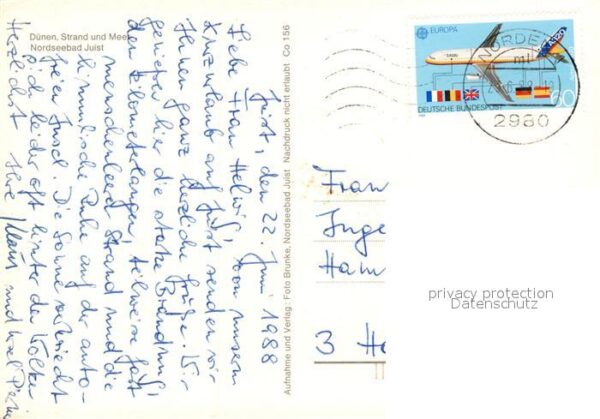 Dünen, Strand und Meer
Nordseebad Juist
Juist, den 22. Juni 1988
Liebe Frau Helwi, von unserem
Kurzurlaub auf Juist senden wir
Ihnen ganz herzliche Grüße. Wir
genießen hier die starke Brandung,
den kilometerlangen, teilweise fast
menschenleeren Strand und die
himmlische Ruhe auf der auto-
freien Insel. Die Sonne versteckt
sich leider oft hinter den Wolken
Herzlichst Ihre Klaus und
Aufnahme und Verlag: Foto Brunke, Nordseebad Juist Nachdruck nicht erlaubt Co 156
EUROPA
AIRBUS
60
DEUTSCHE BUNDESPOST
NORDEN
2980
Frau
Inge
Ham
3 Ha
privacy protection
Datenschutz